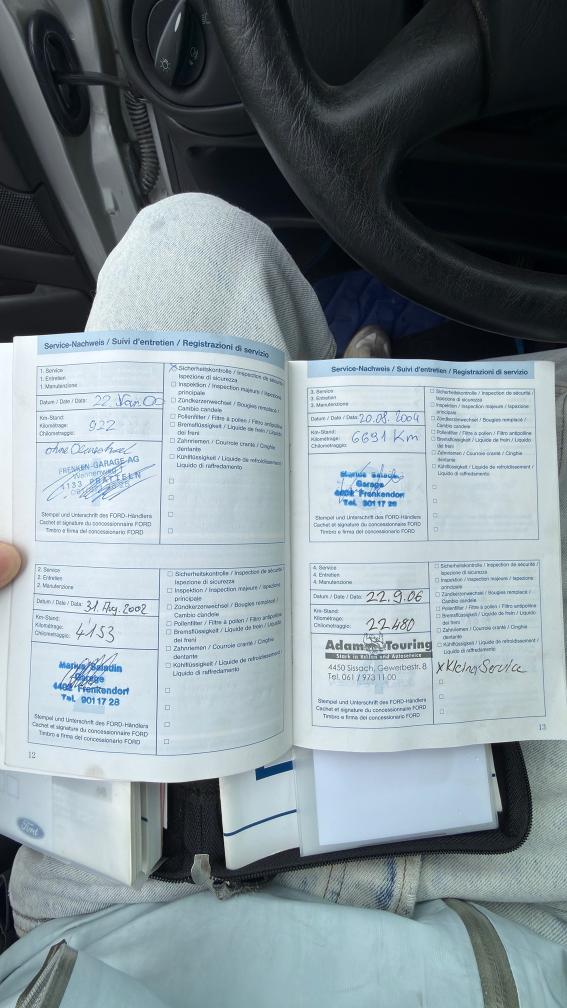 Service-Nachweis / Suivi d'entretien / Registrazioni di servizio
1. Service
1. Entretien
1. Manutenzione
Datum / Date / Data: 22 Jan. 00
Km-Stand:
Kilométrage: 922
Chilometraggio:
FRENKEN-GARAGE AG
4133 PRATTELN
Stempel und Unterschrift des FORD-Händlers
Cachet et signature du concessionnaire FORD
Timbro e firma del concessionario FORD
X Sicherheitskontrolle / Inspection de sécurité /
Ispezione di sicurezza
Inspektion / Inspection majeure / Ispezione
principale
Zündkerzenwechsel / Bougies remplacé /
Cambio candele
Pollenfilter / Filtre à pollen / Filtro antipolline
Bremsflüssigkeit / Liquide de frein / Liquido
dei freni
Zahnriemen / Courroie cranté / Cinghie
dentante
Kühlflüssigkeit / Liquide de refroidissement /
Liquido di raffredamento
2. Service
2. Entretien
2. Manutenzione
Datum / Date / Data: 31. Aug. 2002
Km-Stand:
Kilométrage: 4'153
Chilometraggio:
Marius Saladin
Garage
4402 Frenkendorf
Tel. 901 17 28
Stempel und Unterschrift des FORD-Händlers
Cachet et signature du concessionnaire FORD
Timbro e firma del concessionario FORD
Sicherheitskontrolle / Inspection de sécurité /
Ispezione di sicurezza
Inspektion / Inspection majeure / Ispezione
principale
Zündkerzenwechsel / Bougies remplacé /
Cambio candele
Pollenfilter / Filtre à pollen / Filtro antipolline
Bremsflüssigkeit / Liquide de frein / Liquido
dei freni
Zahnriemen / Courroie cranté / Cinghie
dentante
Kühlflüssigkeit / Liquide de refroidissement /
Liquido di raffredamento
12
Service-Nachweis / Suivi d'entretien / Registrazioni di servizio
3. Service
3. Entretien
3. Manutenzione
Datum / Date / Data: 20.08.2004
Km-Stand:
Kilométrage: 6691 Km
Chilometraggio:
Marius Saladin
Garage
4402 Frenkendorf
Tel. 901 17 28
Stempel und Unterschrift des FORD-Händlers
Cachet et signature du concessionnaire FORD
Timbro e firma del concessionario FORD
Sicherheitskontrolle / Inspection de sécurité /
Ispezione di sicurezza
Inspektion / Inspection majeure / Ispezione
principale
Zündkerzenwechsel / Bougies remplacé /
Cambio candele
Pollenfilter / Filtre à pollen / Filtro antipolline
Bremsflüssigkeit / Liquide de frein / Liquido
dei freni
Zahnriemen / Courroie cranté / Cinghie
dentante
Kühlflüssigkeit / Liquide de refroidissement /
Liquido di raffredamento
4. Service
4. Entretien
4. Manutenzione
Datum / Date / Data: 22.9.06
Km-Stand:
Kilométrage: 22480
Chilometraggio:
Adam Touring
Stark in Reifen und Autoservice
4450 Sissach, Gewerbestr. 8
Tel. 061 / 973 11 00
Stempel und Unterschrift des FORD-Händlers
Cachet et signature du concessionnaire FORD
Timbro e firma del concessionario FORD
Sicherheitskontrolle / Inspection de sécurité /
Ispezione di sicurezza
Inspektion / Inspection majeure / Ispezione
principale
Zündkerzenwechsel / Bougies remplacé /
Cambio candele
Pollenfilter / Filtre à pollen / Filtro antipolline
Bremsflüssigkeit / Liquide de frein / Liquido
dei freni
Zahnriemen / Courroie cranté / Cinghie
dentante
Kühlflüssigkeit / Liquide de refroidissement /
Liquido di raffredamento
X Kleiner Service
13
Ford